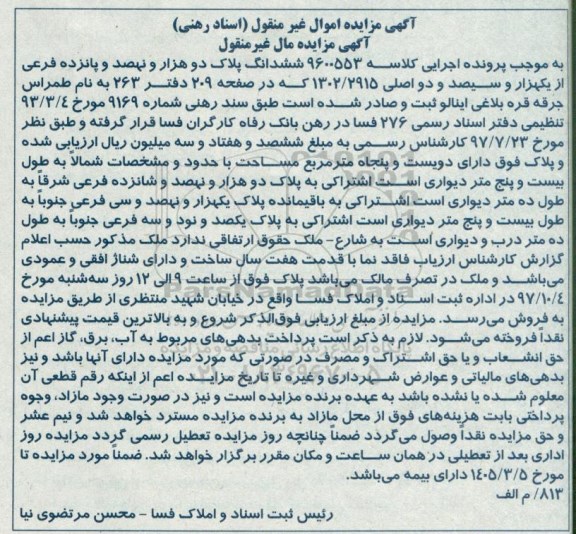 آگهی مزایده اموال غیر منقول (اسناد رهنی)
آگهی مزایده مال غیرمنقول
به موجب پرونده اجرایی کلاسه ۹۶۰۰۵۵۳ ششدانگ پلاک دو هزار و نهصد و پانزده فرعی
از یکهزار و سیصد و دو اصلی ۱۳۰۲/۲۹۱۵ که در صفحه ۲۰۹ دفتر ۲۶۳ به نام طمراس
جرقه قره بلاغی اینالو ثبت و صادر شده است طبق سند رهنی شماره ۹۱۶۹ مورخ ۹۳/۳/۴
تنظیمی دفتر اسناد رسمی ۲۷۶ فسا در رهن بانک رفاه کارگران فسا قرار گرفته و طبق نظر
مورخ ۹۷/۷/۲۳ کارشناس رسمی به مبلغ ششصد و هفتاد و سه میلیون ریال ارزیابی شده
و پلاک فوق دارای دویست و پنجاه مترمربع مساحت با حدود و مشخصات شمالاً به طول
بیست و پنج متر دیواری است اشتراکی به پلاک دو هزار و نهصد و شانزده فرعی شرقاً به
طول ده متر دیواری است اشتراکی به باقیمانده پلاک یکهزار و نهصد و سی فرعی جنوباً به
طول بیست و پنج متر دیواری است اشتراکی به پلاک یکصد و نود و سه فرعی جنوباً به طول
ده متر درب و دیواری است به شارع- ملک حقوق ارتفاقی ندارد ملک مذکور حسب اعلام
گزارش کارشناس ارزیاب فاقد نما با قدمت هفت سال ساخت و دارای شناژ افقی و عمودی
می‌باشد و ملک در تصرف مالک می‌باشد پلاک فوق از ساعت ۹ الی ۱۲ روز سه‌شنبه مورخ
۹۷/۱۰/۴ در اداره ثبت اسناد و املاک فسا واقع در خیابان شهید منتظری از طریق مزایده
به فروش می‌رسد. مزایده از مبلغ ارزیابی فوق‌الذکر شروع و به بالاترین قیمت پیشنهادی
نقداً فروخته می‌شود. لازم به ذکر است پرداخت بدهی‌های مربوط به آب، برق، گاز اعم از
حق انشعاب و یا حق اشتراک و مصرف در صورتی که مورد مزایده دارای آنها باشد و نیز
بدهی‌های مالیاتی و عوارض شهرداری و غیره تا تاریخ مزایده اعم از اینکه رقم قطعی آن
معلوم شده یا نشده باشد به عهده برنده مزایده است و نیز در صورت وجود مازاد، وجوه
پرداختی بابت هزینه‌های فوق از محل مازاد به برنده مزایده مسترد خواهد شد و نیم عشر
و حق مزایده نقداً وصول می‌گردد ضمناً چنانچه روز مزایده تعطیل رسمی گردد مزایده روز
اداری بعد از تعطیلی در همان ساعت و مکان مقرر برگزار خواهد شد. ضمناً مورد مزایده تا
مورخ ۱۴۰۵/۳/۵ دارای بیمه می‌باشد.
۸۱۳/ م الف
رئیس ثبت اسناد و املاک فسا - محسن مرتضوی نیا